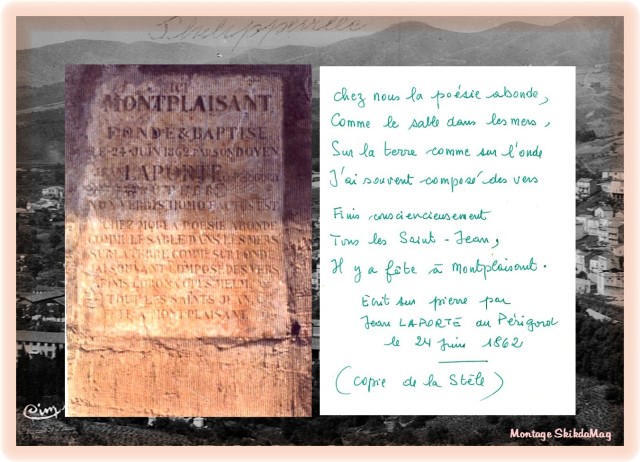 Philippeville
ICI
MONTPLAISANT
FONDÉ & BAPTISÉ
LE 24 JUIN 1862 PAR SON DOYEN
LAPORTE
CHEZ MOI LA POESIE ABONDE
COMME LE SABLE DANS LES MERS
SUR LA TERRE COMME SUR L'ONDE
J'AI SOUVENT COMPOSÉ DES VERS
TOUT LES SAINTS JEAN
FETE A MONTPLAISANT
Chez nous la poésie abonde,
Comme le sable dans les mers,
Sur la terre comme sur l'onde
J'ai souvent composé des vers
Finis consciencieusement
Tous les Saint-Jean,
Il y a fête à Montplaisant.
Ecrit sur pierre par
Jean LAPORTE au Périgord
le 24 Juin 1862
(copie de la Stèle)
Montage SkikdaMag